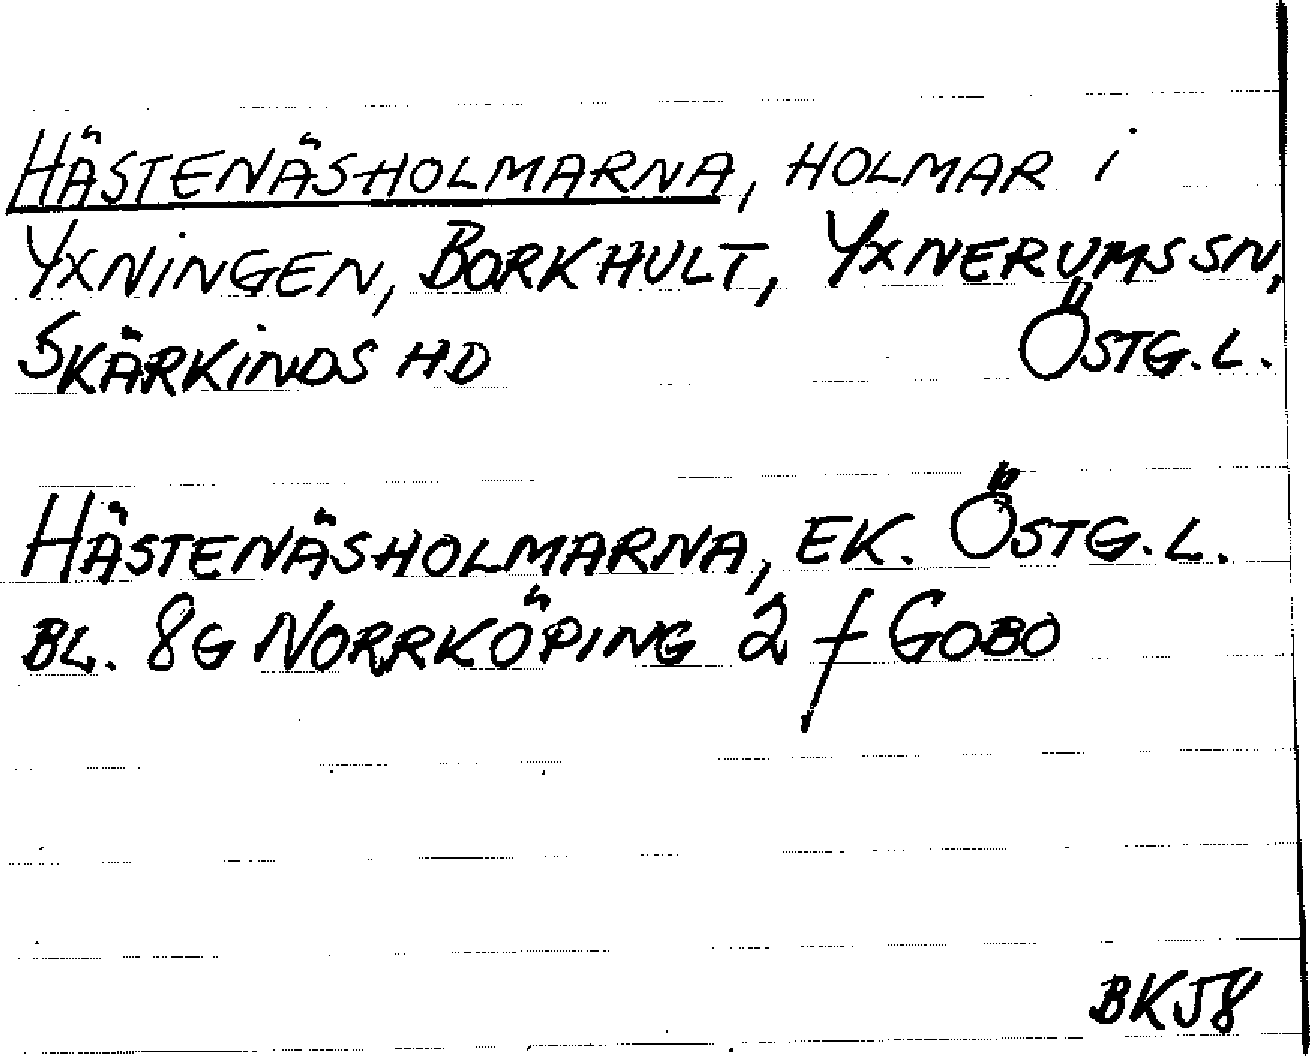 HÄSTENÄSHOLMARNA, HOLMAR i
YXNINGEN, BORKHULT, YXNERUMS SN,
SKÄRKINDS HD ÖSTG.L.
HÄSTENÄSHOLMARNA, EK. ÖSTG.L.
BL. 8G NORRKÖPING 2 f GOBO
BK58